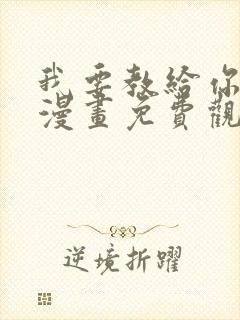 我要教给你
漫畫免費觀
逆境折躍